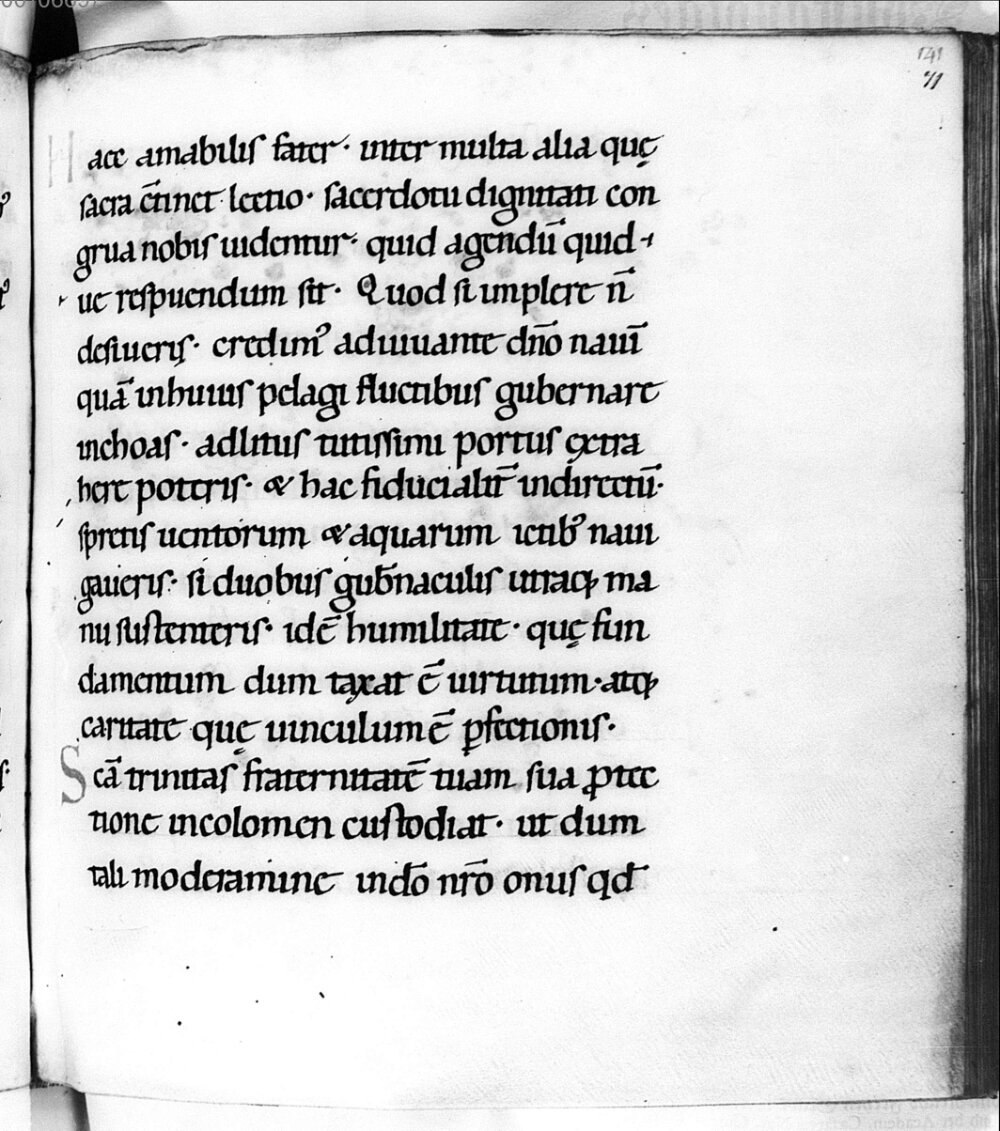 141
71
Hacc amabilis fater· inter multa alia quę
sacra c̄tinet lectio· sacerdotu dignitati con
grua nobis uidentur· quid agendū quid
ue respuendum sit· Quod si implere n̄
desiueris· credim᾽ adiuuante dn̄o nauī
quā in huius pelagi fluctibus gubernare
inchoas· ad litus tutissimi portus ęxtra
here poteris· & hac fiducialit̄ indirectū·
spretis uentorum & aquarum ictib᾽ naui
gaueris· si duobus gub̄naculis utraq; ma
nu sustenteris· idē humilitate· quę fun
damentum dum taxat ē uirtutum· atq;
caritate quę uinculum ē p̄fectionis·
Scā trinitas fraternitatē tuam sua ꝓtec
tione incolomen custodiat· ut dum
tali moderamine in dō nr̄o onus qd̄